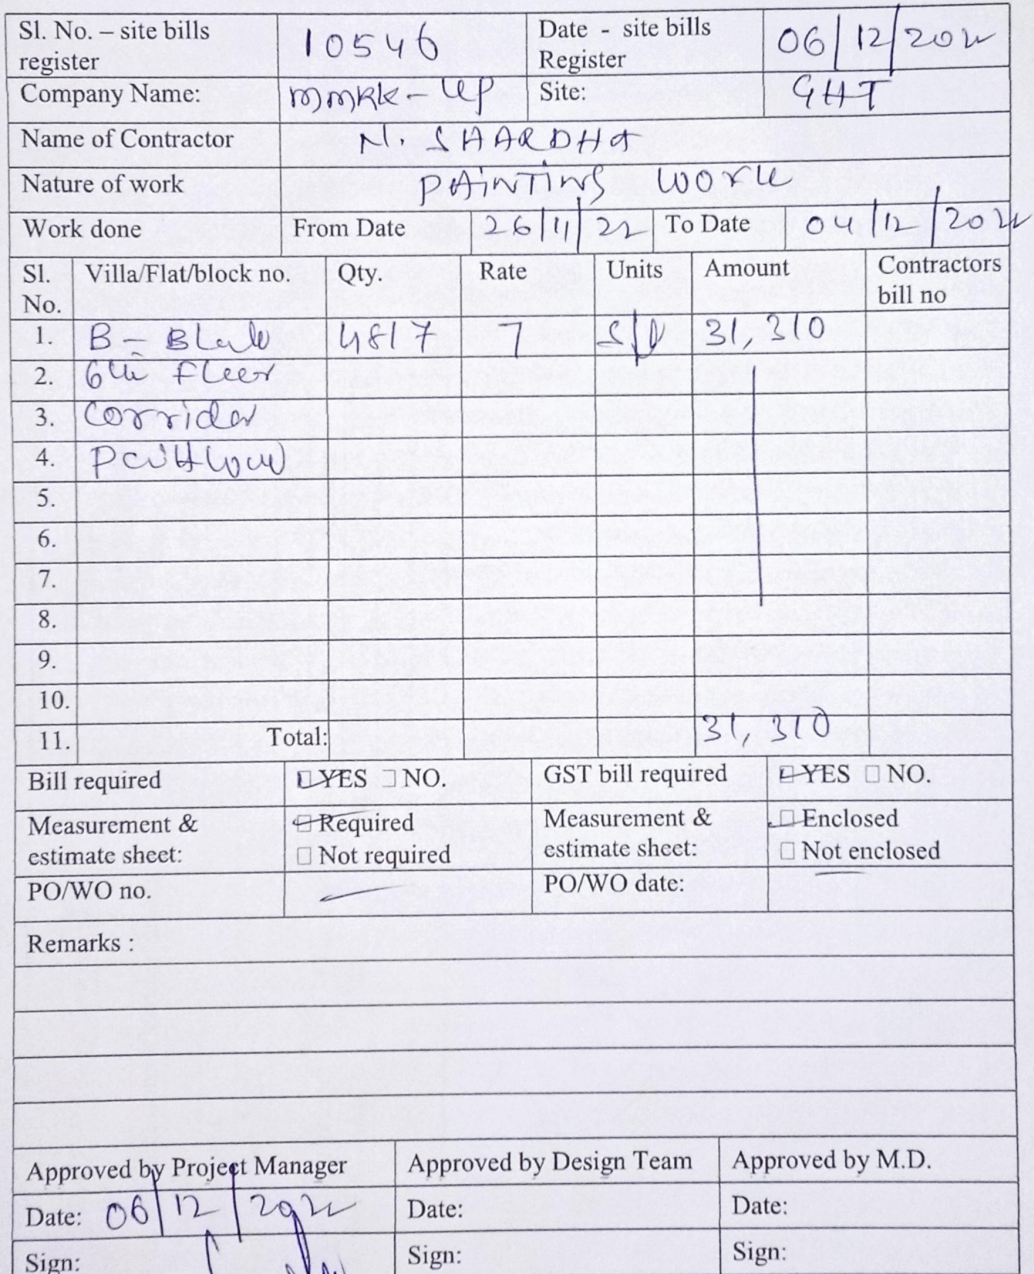 Sl. No. – site bills register 10546 Date - site bills Register 06/12/2022
Company Name: mmkk Site: GHT
Name of Contractor N. SHARDHA
Nature of work PAiNTiNG WORK
Work done From Date 26/11/22 To Date 04/12/2022
Sl. No. Villa/Flat/block no. Qty. Rate Units Amount Contractors bill no
1. B 4817 7 31,310
2. 6th Floor
3. Corridor
4.
5.
6.
7.
8.
9.
10.
11. Total: 31,310
Bill required ☐ YES ☐ NO. GST bill required ☐ YES ☐ NO.
Measurement & estimate sheet: ☐ Required ☐ Not required Measurement & estimate sheet: ☐ Enclosed ☐ Not enclosed
PO/WO no. PO/WO date:
Remarks :
Approved by Project Manager Approved by Design Team Approved by M.D.
Date: 06/12/2022 Date: Date:
Sign: Sign: Sign: